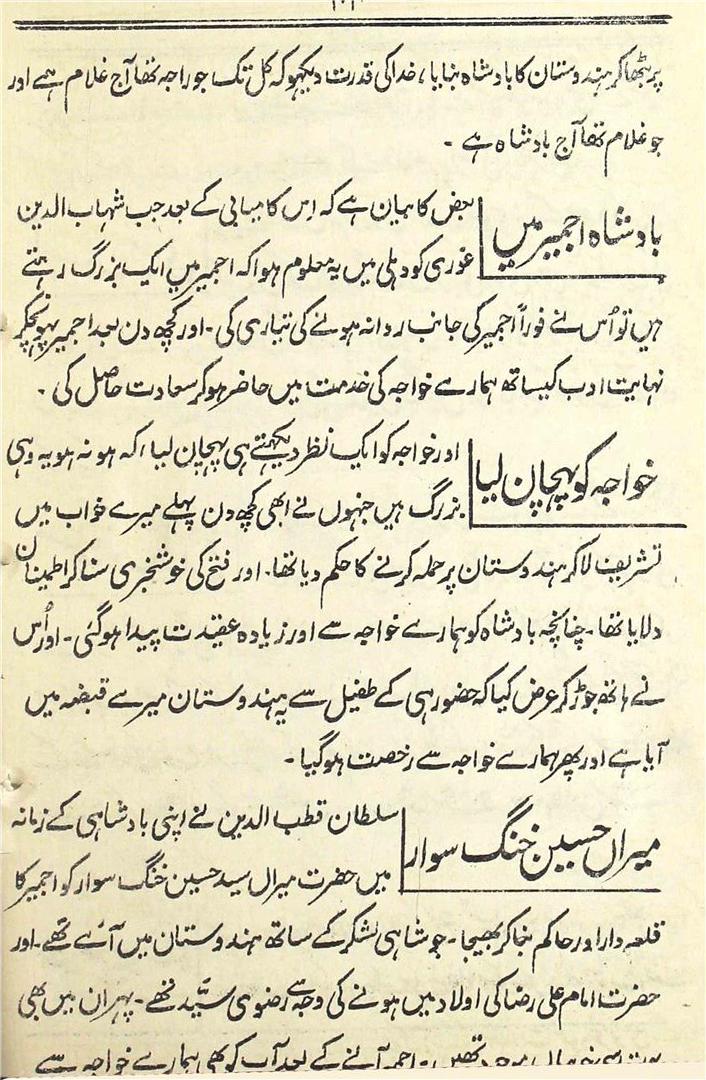 پر بٹھا کر ہندوستان کا بادشاہ بنایا، خدا کی قدرت دیکھو کہ کل تک جو راجہ تھا آج غلام ہے اور
جو غلام تھا آج بادشاہ ہے -
بادشاہ اجمیر میں
بعض کا بیان ہے کہ اِس کامیابی کے بعد جب شہاب الدین
غوری کو دہلی میں یہ معلوم ہوا کہ اجمیر میں ایک بزرگ رہتے
ہیں تو اُس نے فوراً اجمیر کی جانب روانہ ہونے کی تیاری کی - اور کچھ دن بعد اجمیر پہونچکر
نہایت ادب کیساتھ ہمارے خواجہ کی خدمت میں حاضر ہو کر سعادت حاصل کی -
خواجہ کو پہچان لیا
اور خواجہ کو ایک نظر دیکھتے ہی پہچان لیا کہ ہو نہ ہو یہ وہی
بزرگ ہیں جنہوں نے ابھی کچھ دن پہلے میرے خواب میں
تشریف لا کر ہندوستان پر حملہ کرنے کا حکم دیا تھا - اور فتح کی خوشخبری سنا کر اطمینان
دلایا تھا - چنانچہ بادشاہ کو ہمارے خواجہ سے اور زیادہ عقیدت پیدا ہوگئی - اور اُس
نے ہاتھ جوڑ کر عرض کیا کہ حضور ہی کے طفیل سے یہ ہندوستان میرے قبضہ میں
آیا ہے اور پھر ہمارے خواجہ سے رخصت ہو گیا -
میراں حسین خنگ سوار
سلطان قطب الدین نے اپنی بادشاہی کے زمانہ
میں حضرت میراں سید حسین خنگ سوار کو اجمیر کا
قلعہ دار اور حاکم بنا کر بھیجا - جو شاہی لشکر کے ساتھ ہندوستان میں آئے تھے - اور
حضرت امام علی رضا کی اولاد میں ہونے کی وجہ سے رضوی سیّد تھے - پھر ان میں بھی
بہت سی خوبیاں موجود تھیں - اجمیر آنے کے بعد آپ کو بھی ہمارے خواجہ سے